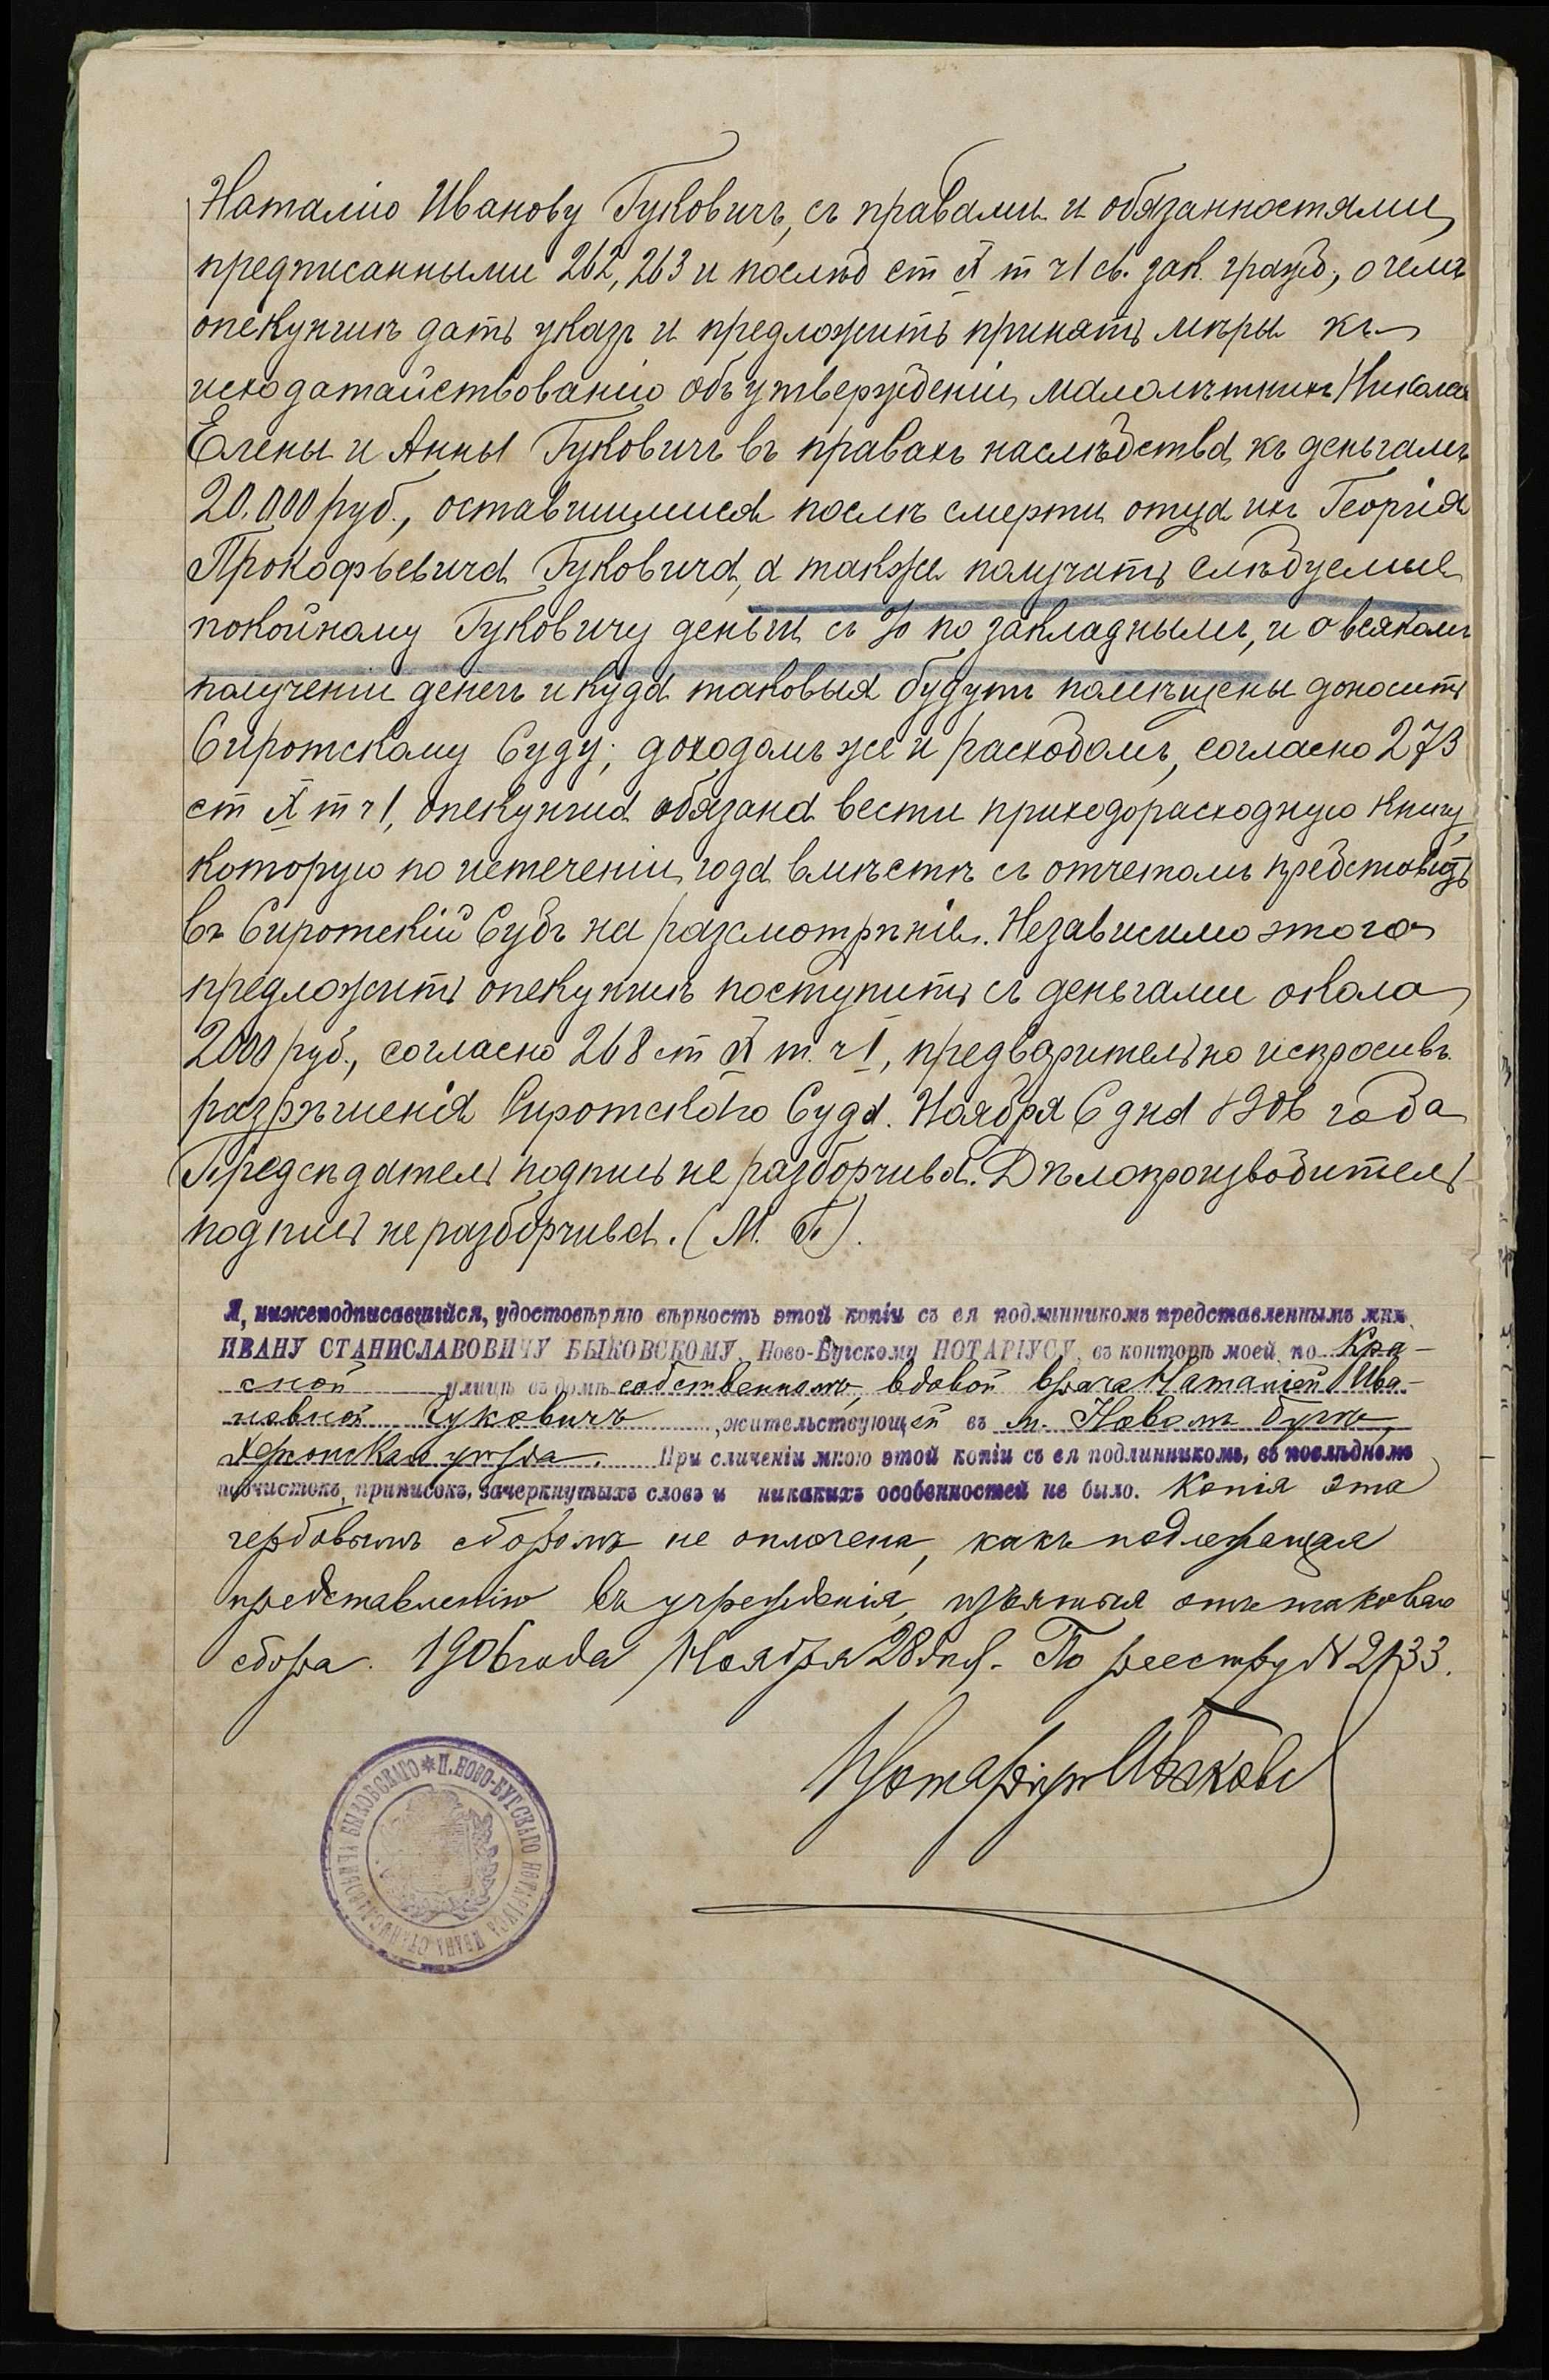 Наталію Иванову Гуковичъ, съ правами и обязанностями,
предписанными 262, 263 и послѣд ст X т ч I св. зак. гражд., о чемъ
опекуншѣ дать указъ и предложить принять мѣры къ
исходатайствованію объ утвержденіи малолѣтнихъ Николая
Елены и Анны Гуковичъ въ правахъ наслѣдства къ деньгамъ
20.000 руб., оставшимися послѣ смерти отца ихъ Георгія
Прокофьевича Гуковича, а также получить слѣдуемые
покойному Гуковичу деньги съ % по закладнымъ, и о всякомъ
полученіи денегъ и куда таковыя будутъ помѣщены доносить
Сиротскому Суду; доходамъ же и расходамъ, согласно 273
ст X т ч I, опекунша обязана вести приходорасходную книгу,
которую по истеченіи года вмѣстѣ съ отчетомъ представить
въ Сиротскій Судъ на разсмотрѣніе. Независимо этого
предложить опекуншѣ поступить съ деньгами около
2000 руб., согласно 268 ст X т. ч I, предварительно испросивъ
разрѣшенія Сиротскаго Суда. Ноября 6 дня 1906 года
Предсѣдатель подпись не разборчива. Дѣлопроизводитель
подпись не разборчива. (М. П.).
Я, нижеподписавшійся, удостовѣряю вѣрность этой копіи съ ея подлинникомъ представленнымъ мнѣ,
ИВАНУ СТАНИСЛАВОВИЧУ БЫКОВСКОМУ, Ново-Бугскому НОТАРІУСУ, въ конторѣ моей, по Кра-
сной улицѣ въ домѣ собственномъ, вдовой врача Наталіей Ива-
новной Гуковичъ, жительствующей въ м. Новомъ Бугѣ
Херсонскаго уѣзда. При сличеніи мною этой копіи съ ея подлинникомъ, въ послѣднемъ
подчистокъ, приписокъ, зачеркнутыхъ словъ и никакихъ особенностей не было. Копія эта
гербовымъ сборомъ не оплачена, какъ подлежащая
представленію въ учрежденія, изъятыя отъ таковаго
сбора. 1906 года Ноября 28 дня. По реестру № 2133.
Нотаріусъ Быковс
* П. НОВО-БУГСКАГО НОТАРІУСА ИВАНА СТАНИСЛАВОВИЧА БЫКОВСКАГО